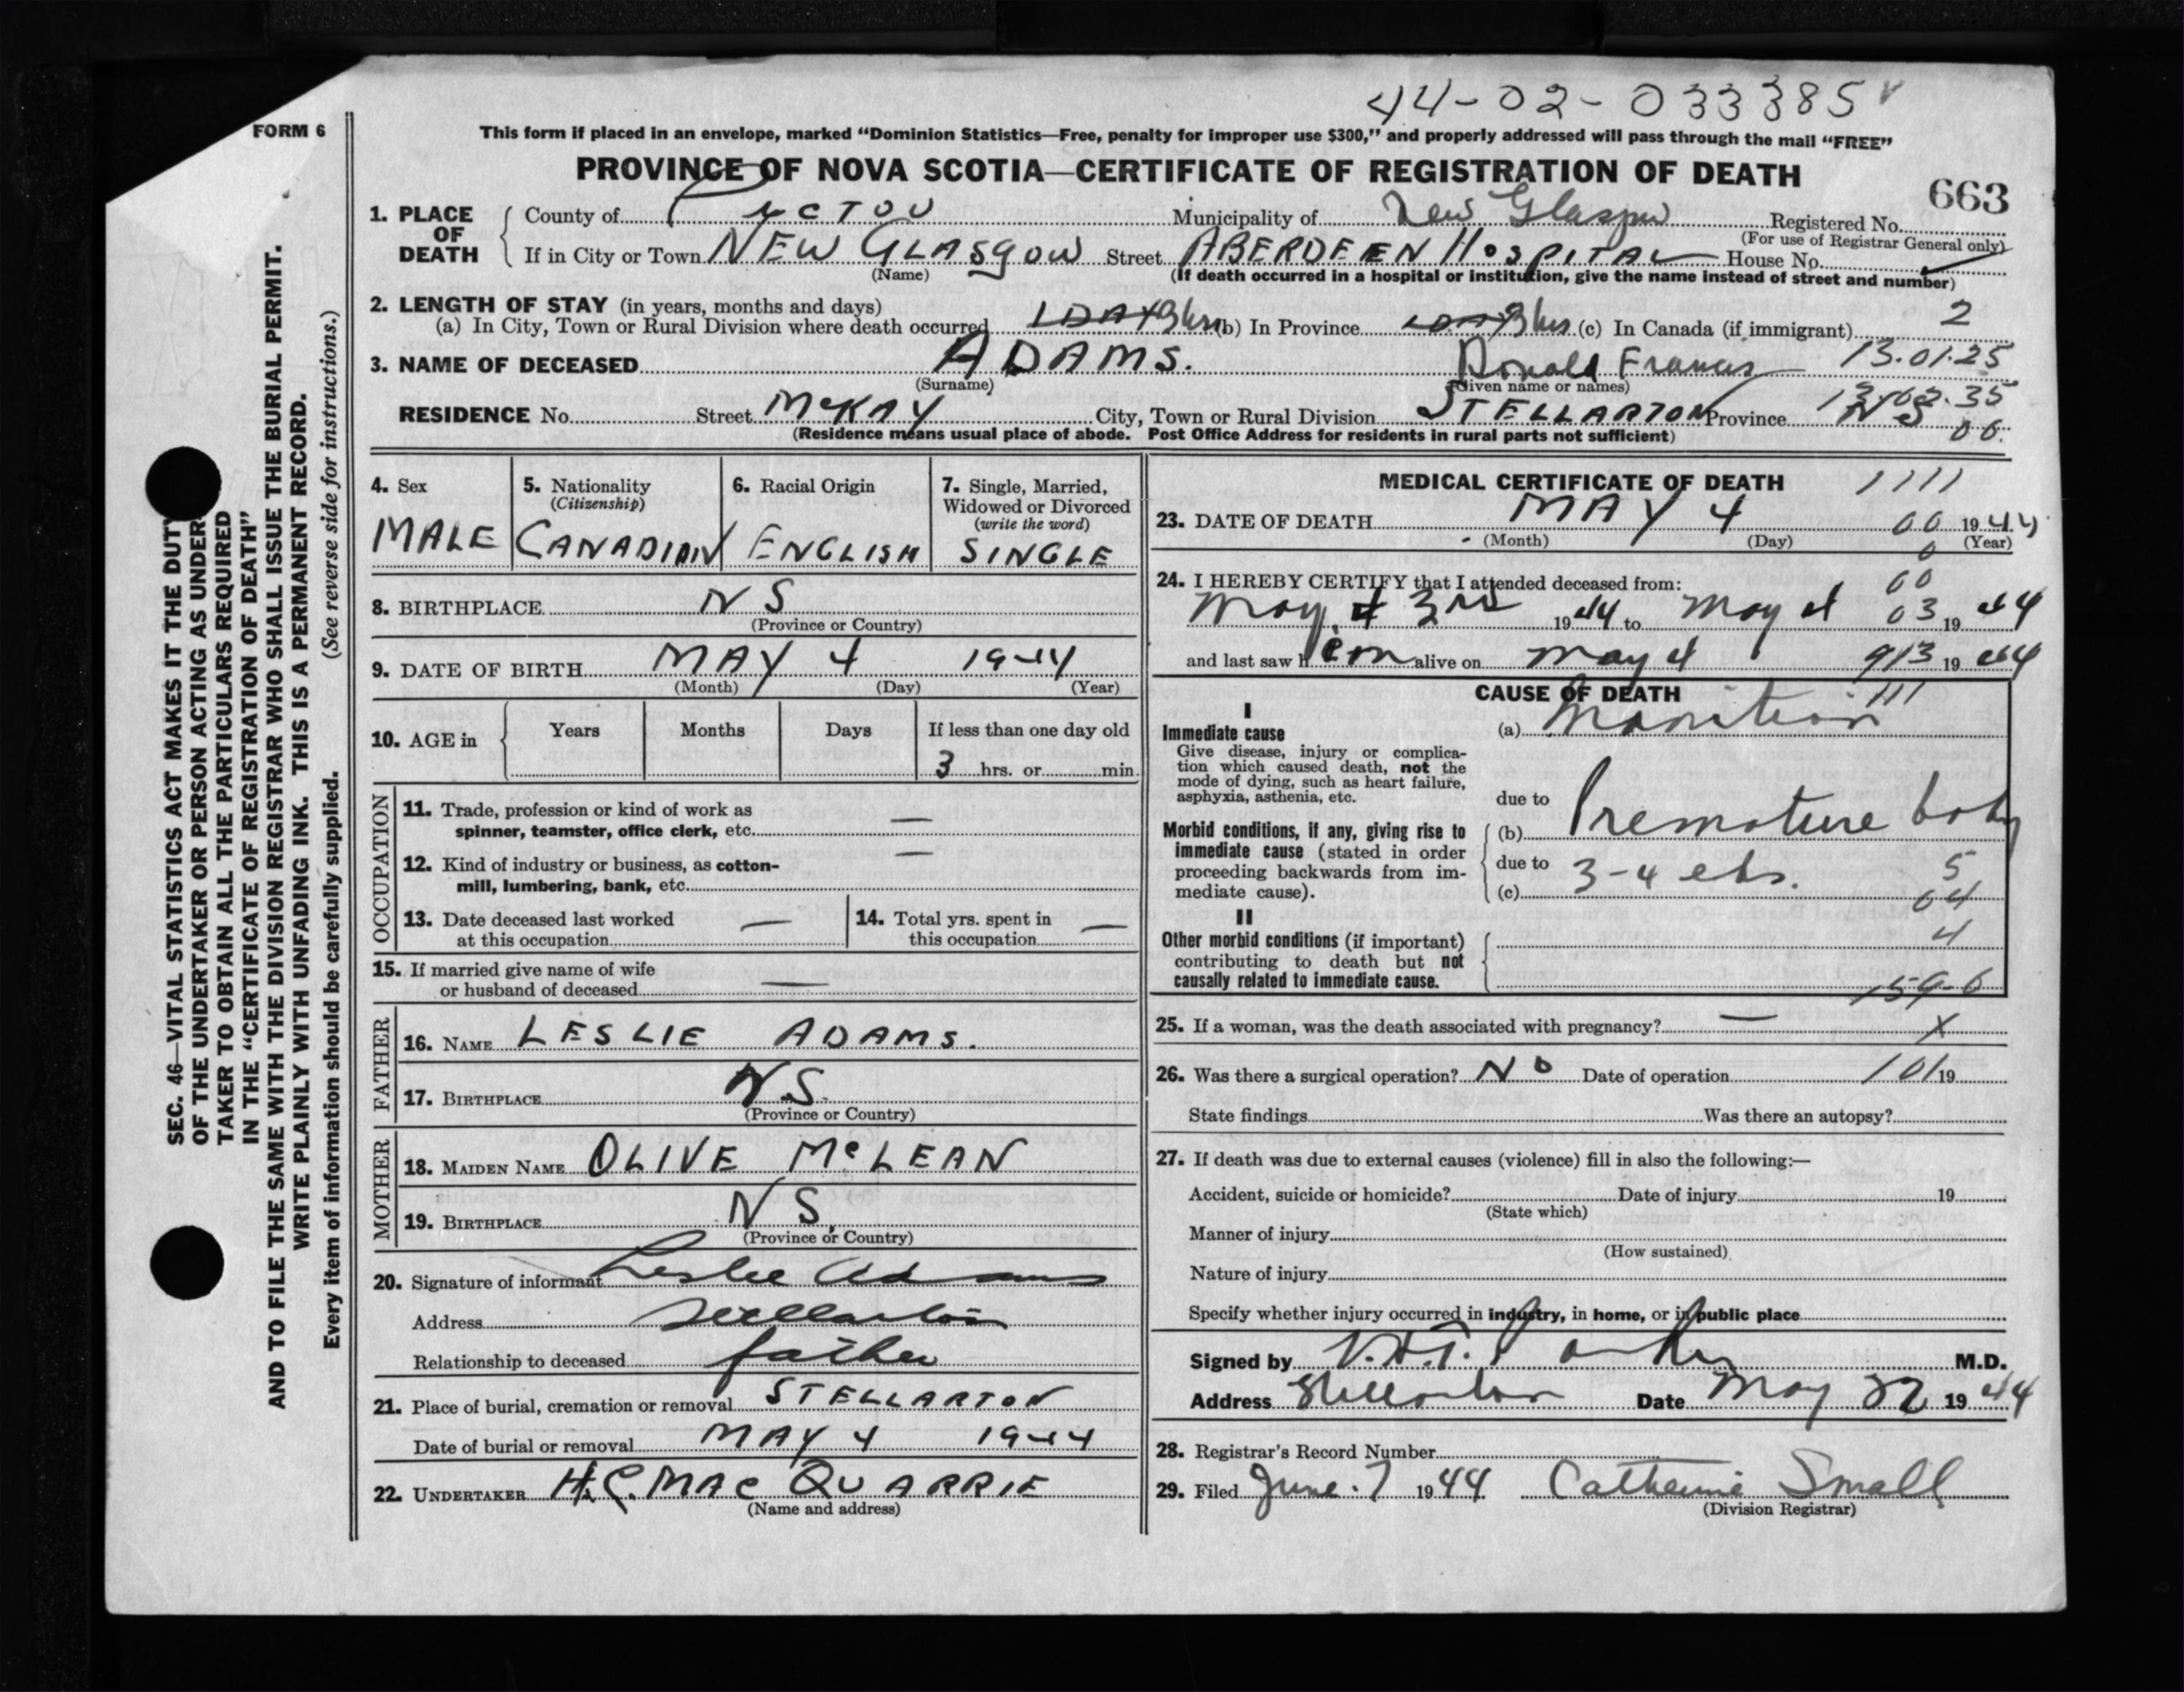 44-02-033385
FORM 6
This form if placed in an envelope, marked "Dominion Statistics—Free, penalty for improper use $300," and properly addressed will pass through the mail "FREE"
PROVINCE OF NOVA SCOTIA—CERTIFICATE OF REGISTRATION OF DEATH
663
1. PLACE OF DEATH
County of PICTOU Municipality of New Glasgow Registered No.
(For use of Registrar General only)
If in City or Town NEW GLASGOW Street ABERDEEN HOSPITAL House No.
(Name) (If death occurred in a hospital or institution, give the name instead of street and number)
2. LENGTH OF STAY (in years, months and days)
(a) In City, Town or Rural Division where death occurred 1 DAY 3 hrs (b) In Province 1 DAY 3 hrs (c) In Canada (if immigrant) 2
3. NAME OF DECEASED ADAMS. Donald Francis 13.01.25
(Surname) (Given name or names)
RESIDENCE No. Street McKAY City, Town or Rural Division STELLARTON Province NS 13.02.35
00.
(Residence means usual place of abode. Post Office Address for residents in rural parts not sufficient)
4. Sex
MALE
5. Nationality
(Citizenship)
CANADIAN
6. Racial Origin
ENGLISH
7. Single, Married,
Widowed or Divorced
(write the word)
SINGLE
8. BIRTHPLACE NS
(Province or Country)
9. DATE OF BIRTH MAY 4 1944
(Month) (Day) (Year)
10. AGE in
Years Months Days If less than one day old
3 hrs. or min.
OCCUPATION
11. Trade, profession or kind of work as
spinner, teamster, office clerk, etc. —
12. Kind of industry or business, as cotton-
mill, lumbering, bank, etc. —
13. Date deceased last worked
at this occupation —
14. Total yrs. spent in
this occupation —
15. If married give name of wife
or husband of deceased —
FATHER
16. NAME LESLIE ADAMS.
17. BIRTHPLACE N.S.
(Province or Country)
MOTHER
18. MAIDEN NAME OLIVE McLEAN
19. BIRTHPLACE NS.
(Province or Country)
20. Signature of informant Leslie Adams
Address Stellarton
Relationship to deceased father
21. Place of burial, cremation or removal STELLARTON
Date of burial or removal MAY 4 1944
22. UNDERTAKER H.C. MACQUARRIE
(Name and address)
MEDICAL CERTIFICATE OF DEATH 1111
23. DATE OF DEATH MAY 4 00 1944
(Month) (Day) (Year)
0
24. I HEREBY CERTIFY that I attended deceased from: 00
May 3rd 1944 to May 4 03 1944
and last saw him alive on May 4 913 1944
CAUSE OF DEATH 111
I
Immediate cause
Give disease, injury or complica-
tion which caused death, not the
mode of dying, such as heart failure,
asphyxia, asthenia, etc.
(a) Inanition
due to
Morbid conditions, if any, giving rise to
immediate cause (stated in order
proceeding backwards from im-
mediate cause).
(b) Premature baby
due to 3-4 lbs. 5
(c) 04
II
Other morbid conditions (if important)
contributing to death but not
causally related to immediate cause.
4
159-6
25. If a woman, was the death associated with pregnancy? — X
26. Was there a surgical operation? NO Date of operation 101 19
State findings Was there an autopsy?
27. If death was due to external causes (violence) fill in also the following:—
Accident, suicide or homicide? Date of injury 19
(State which)
Manner of injury
(How sustained)
Nature of injury
Specify whether injury occurred in industry, in home, or in public place
Signed by M.D.
Address Stellarton Date May 22 1944
28. Registrar's Record Number
29. Filed June 7 1944 Catherine Small
(Division Registrar)
SEC. 46—VITAL STATISTICS ACT MAKES IT THE DUTY
OF THE UNDERTAKER OR PERSON ACTING AS UNDER-
TAKER TO OBTAIN ALL THE PARTICULARS REQUIRED
IN THE "CERTIFICATE OF REGISTRATION OF DEATH"
AND TO FILE THE SAME WITH THE DIVISION REGISTRAR WHO SHALL ISSUE THE BURIAL PERMIT.
WRITE PLAINLY WITH UNFADING INK. THIS IS A PERMANENT RECORD.
Every item of information should be carefully supplied. (See reverse side for instructions.)